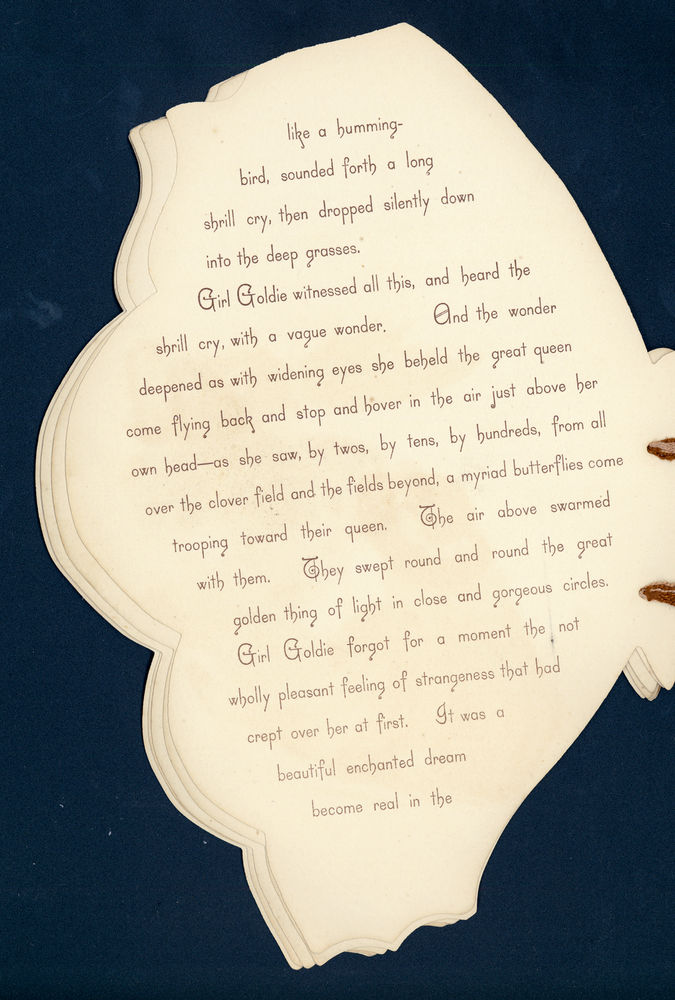 like a humming-
bird, sounded forth a long
shrill cry, then dropped silently down
into the deep grasses.
Girl Goldie witnessed all this, and heard the
shrill cry, with a vague wonder. And the wonder
deepened as with widening eyes she beheld the great queen
come flying back and stop and hover in the air just above her
own head—as she saw, by twos, by tens, by hundreds, from all
over the clover field and the fields beyond, a myriad butterflies come
trooping toward their queen. The air above swarmed
with them. They swept round and round the great
golden thing of light in close and gorgeous circles.
Girl Goldie forgot for a moment the not
wholly pleasant feeling of strangeness that had
crept over her at first. It was a
beautiful enchanted dream
become real in the